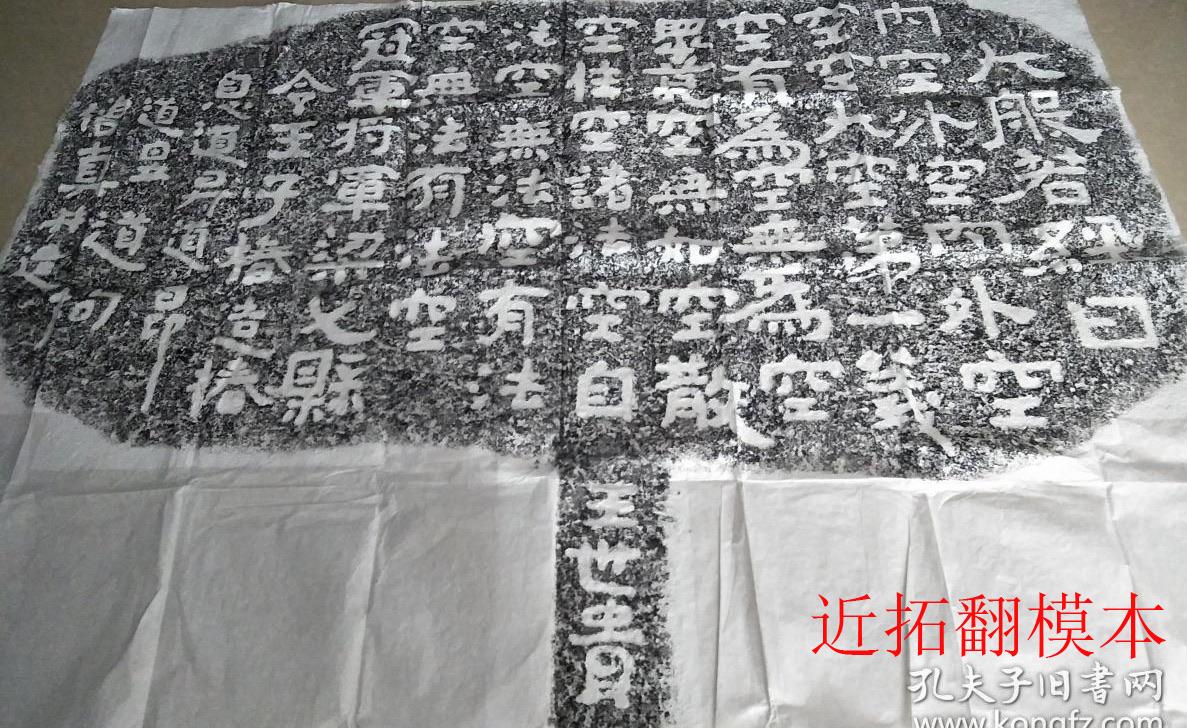 大般若經曰
内空外空内外空
空空大空第一義
空有為空無為空
畢竟空無始空散
空性空諸法空自
法空無法空有法
空無法有法空
冠軍將軍梁父縣
令王子椿造椿
息道昇道昂
道昱道
僧真共造
王世貴
近拓翻模本
孔夫子旧書网
www.kongfz.com